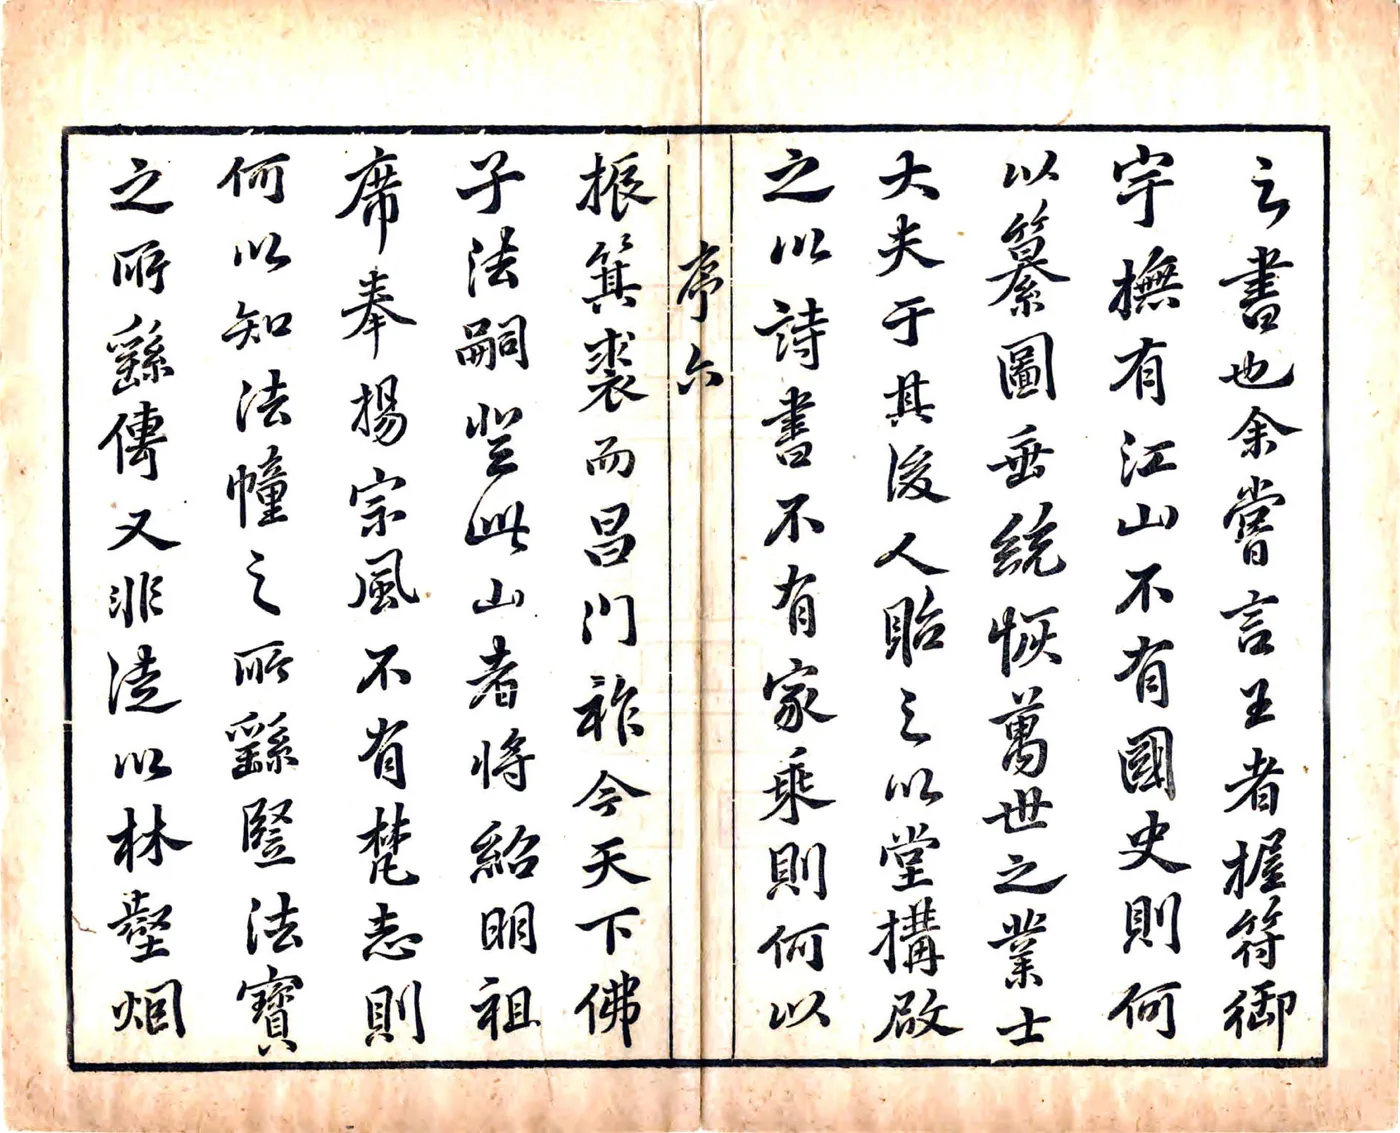 之書也余嘗言王者握符御
宇撫有江山不有國史則何
以纂圖垂統恢萬世之業士
大夫于其後人貽之以堂搆啟
之以詩書不有家乘則何以
序六
振箕裘而昌門祚今天下佛
子法嗣登此山者將紹明祖
席奉揚宗風不有梵志則
何以知法幢之所繇豎法寶
之所繇傳又非徒以林壑烟